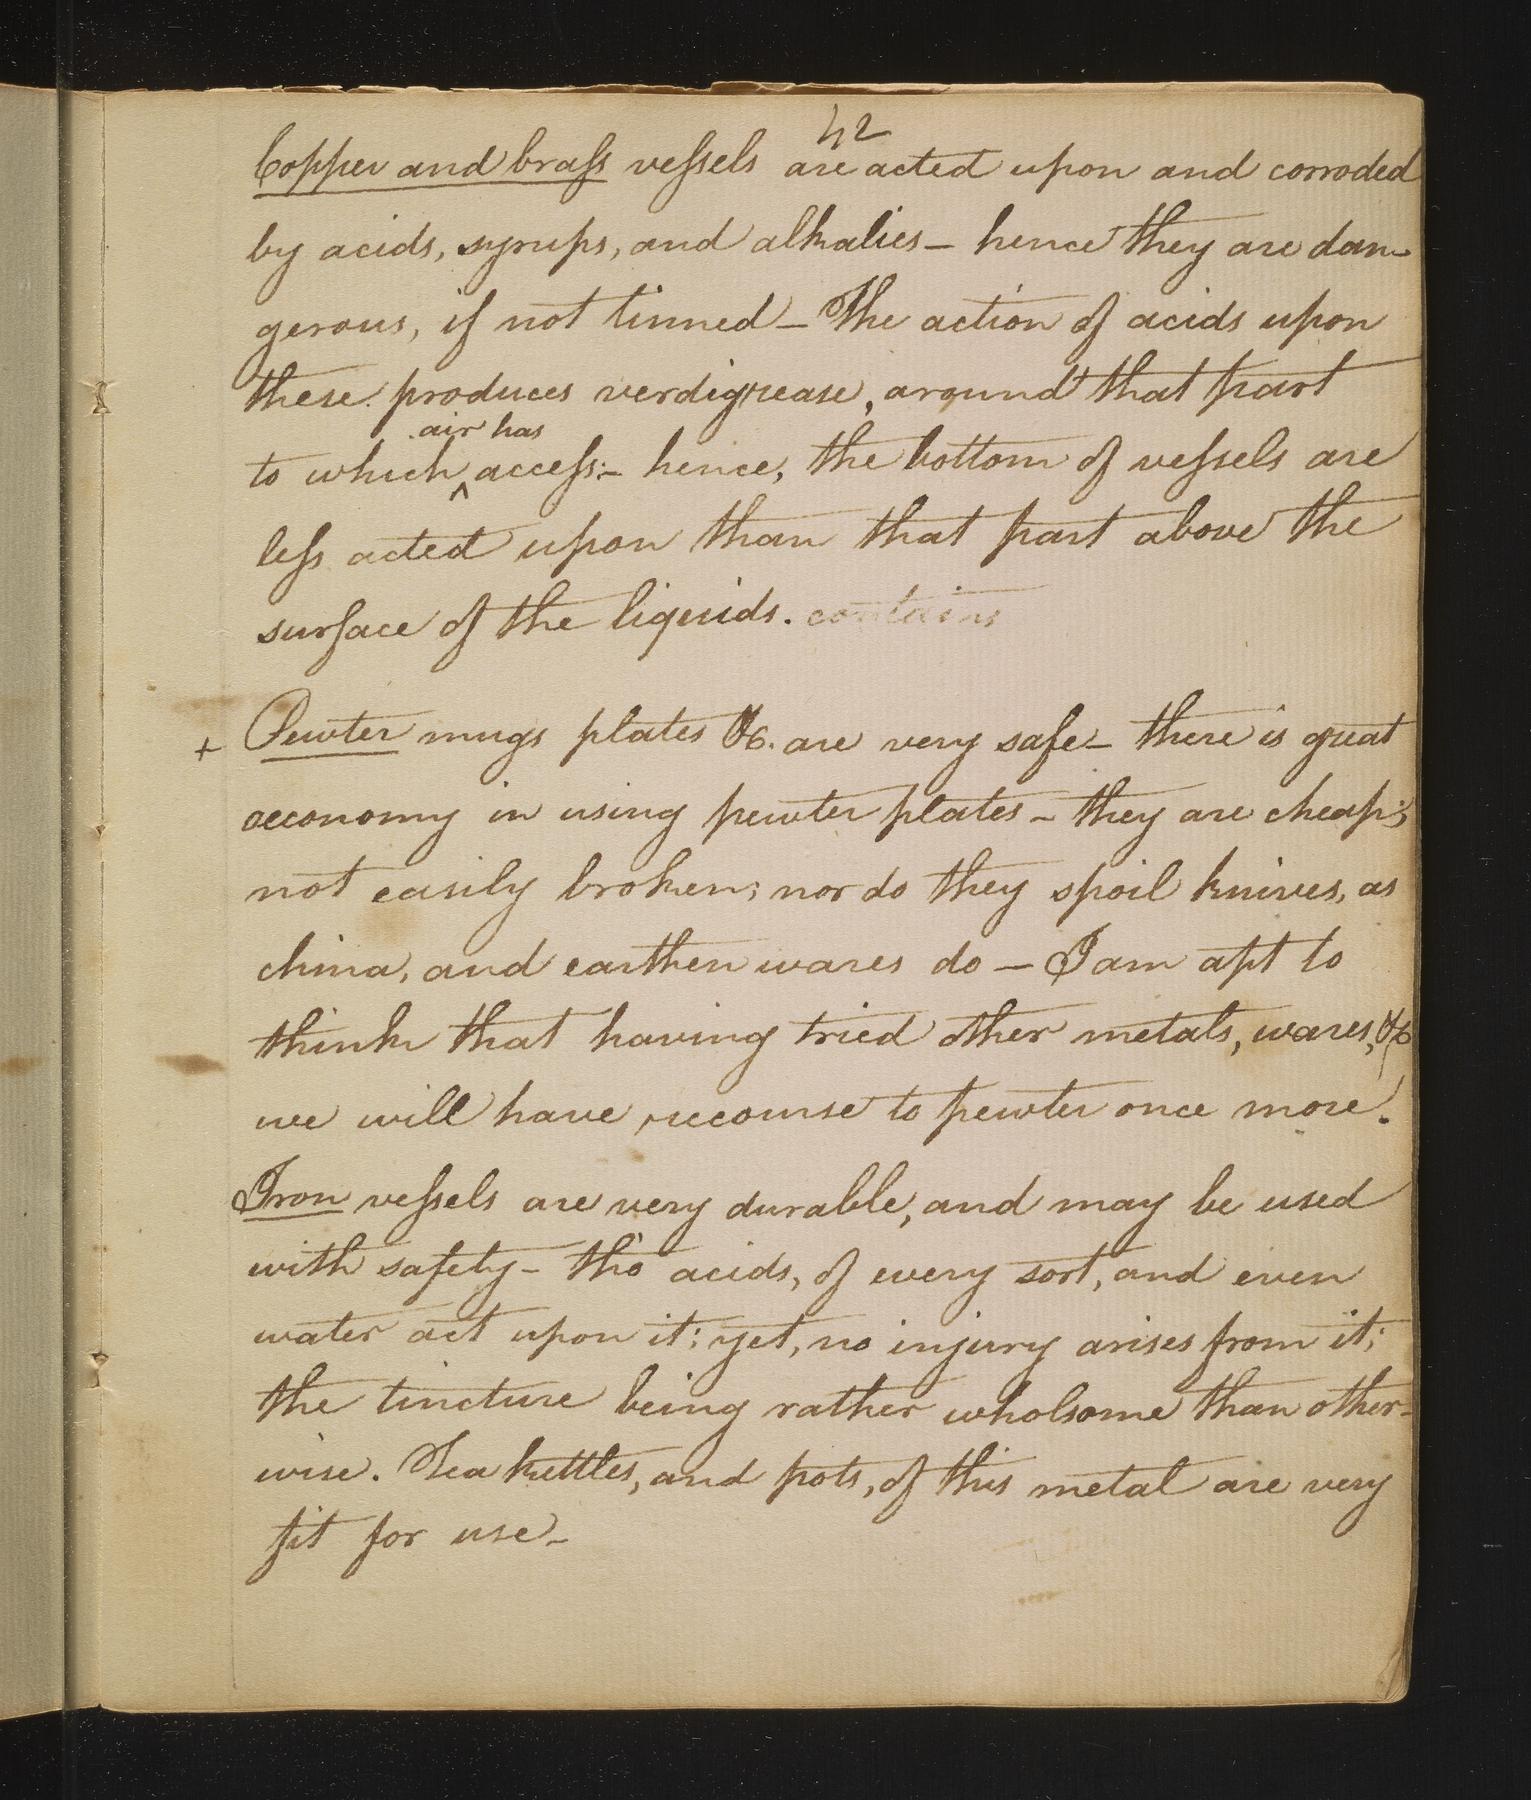 42
Copper and brass vessels are acted upon and corroded
by acids, syrups, and alkalies – hence they are dan-
gerous, if not tinned – The action of acids upon
these produces verdigrease, around that part
air has
to which ^ access:– hence, the bottom of vessels are
less acted upon than that part above the
surface of the liquids. contains
+ Pewter mugs plates &c. are very safe – there is great
oeconomy in using pewter plates – they are cheap;
not easily broken; nor do they spoil knives, as
china, and earthen wares do – I am apt to
think that having tried other metals, wares, &c
we will have recourse to pewter once more.
Iron vessels are very durable, and may be used
with safety – tho' acids, of every sort, and even
water act upon it; yet, no injury arises from it;
the tincture being rather wholsome than other-
wise. Tea kettles, and pots, of this metal are very
fit for use –